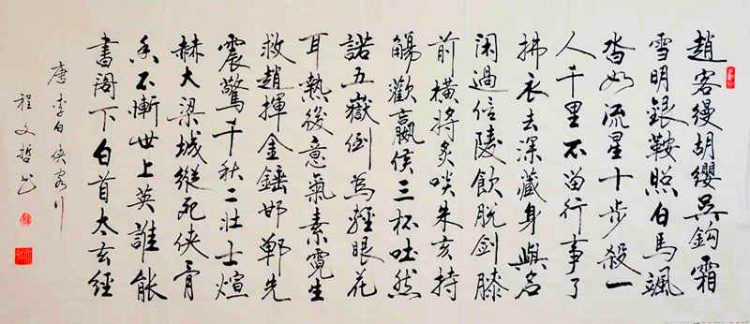 趙客縵胡纓吳鉤霜
雪明銀鞍照白馬颯
沓如流星十步殺一
人千里不留行事了
拂衣去深藏身與名
閑過信陵飲脫劍膝
前橫將炙啖朱亥持
觴歡嬴侯三杯吐然
諾五嶽倒為輕眼花
耳熱後意氣素霓生
救趙揮金錘邯鄲先
震驚千秋二壯士煊
赫大梁城縱死俠骨
香不慚世上英誰能
書閣下白首太玄經
唐李白俠客行
程文哲书